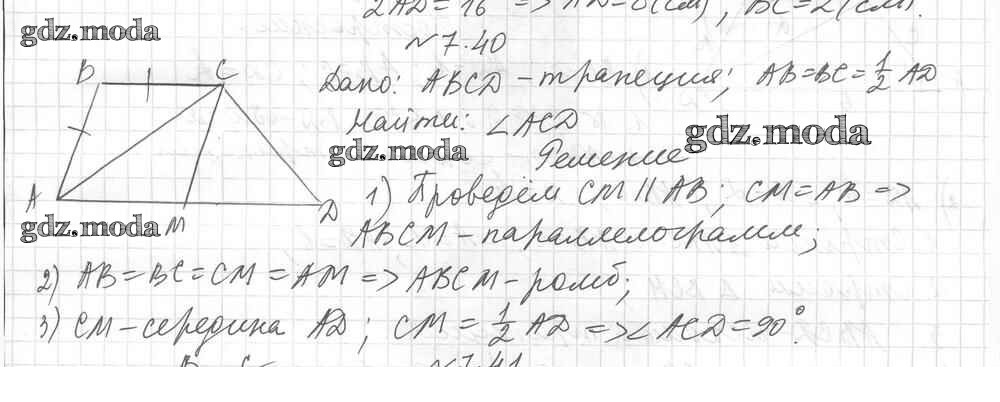 2AD = 16 => AD = 8 (см), BC = 2 (см).
gdz.moda
№7.40
B C
Дано: ABCD - трапеция; AB=BC=1/2 AD
Найти: ∠ACD
gdz.moda
gdz.moda
Решение
A M D
1) Проведём CM || AB; CM = AB =>
gdz.moda
ABCM - параллелограмм;
2) AB = BC = CM = AM => ABCM - ромб;
3) CM - середина AD; CM = 1/2 AD => ∠ACD = 90°.
B C
№7.41